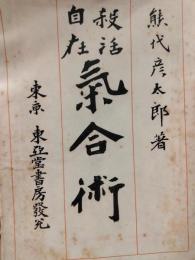 熊代彦太郎著
殺活
自在
氣合術
東京 東亞堂書房發兌